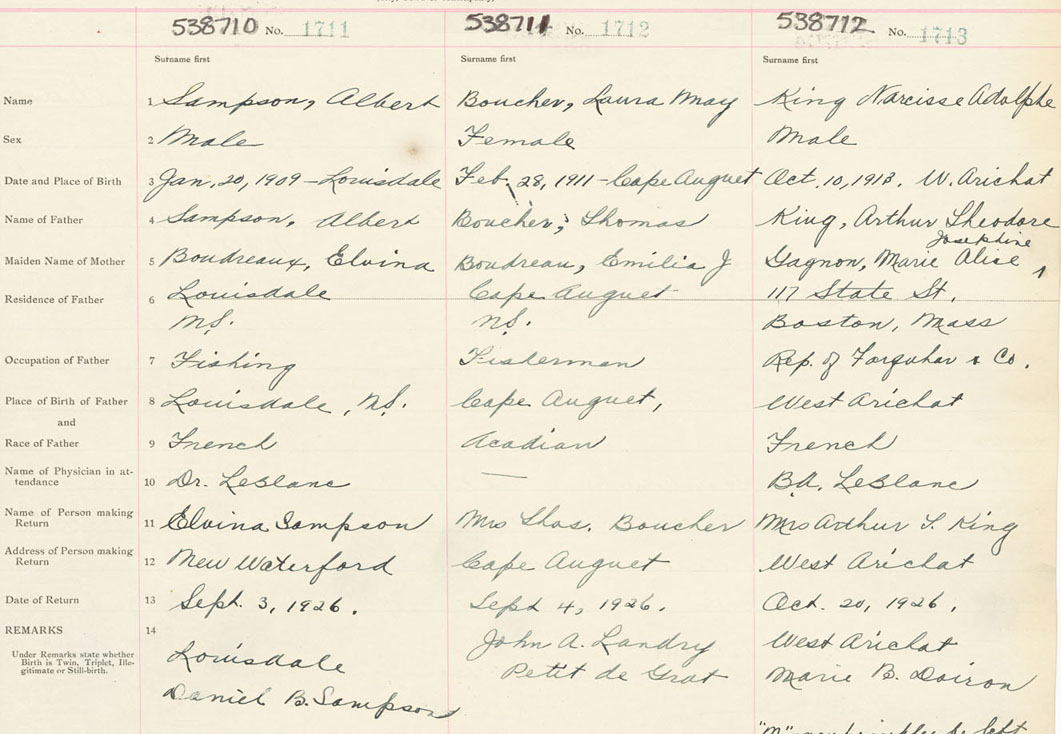 538710 No. 1711 538711 No. 1712 538712 No. 1713
Surname first Surname first Surname first
Name 1 Sampson, Albert Boucher, Laura May King Narcisse Adolphe
Sex 2 Male Female Male
Date and Place of Birth 3 Jan, 20, 1909 - Louisdale Feb. 28, 1911 - Cape Auguet Oct. 10, 1913. W. Arichat
Name of Father 4 Sampson, Albert Boucher, Thomas King, Arthur Theodore
Josephine
Maiden Name of Mother 5 Boudreaux, Elvina Boudreau, Emilia J Gagnon, Marie Alice
Residence of Father 6 Louisdale Cape Auguet 117 State St.
N.S. N.S. Boston, Mass
Occupation of Father 7 Fishing Fisherman Rep. of Farquhar & Co.
Place of Birth of Father 8 Louisdale, N.S. Cape Auguet, West Arichat
and
Race of Father 9 French Acadian French
Name of Physician in at-
tendance 10 Dr. LeBlanc — B.A. LeBlanc
Name of Person making
Return 11 Elvina Sampson Mrs Thos. Boucher Mrs Arthur T. King
Address of Person making
Return 12 New Waterford Cape Auguet West Arichat
Date of Return 13 Sept. 3, 1926. Sept 4, 1926. Oct. 20, 1926.
REMARKS 14 John A. Landry West Arichat
Under Remarks state whether
Birth is Twin, Triplet, Ille-
gitimate or Still-birth.
Louisdale Petit de Grat Marie B. Doiron
Daniel B. Sampson